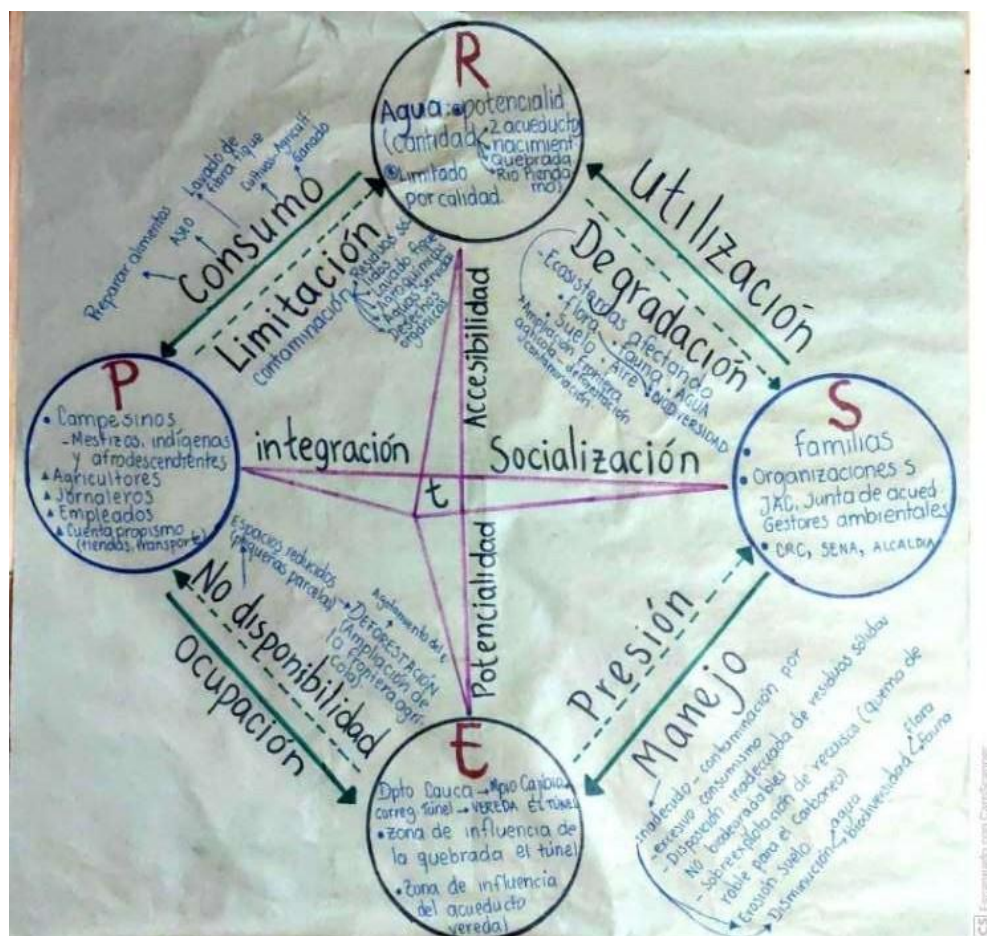 R
Agua: potencialid
(cantidad 2 acueducto
nacimient
quebrada
Rio Pienda
mo)
Limitado
por calidad.
Consumo
Preparar alimentos
ASEO
Lavado de
fibra fique
Cultivos-Agricult
Ganado
Limitación
Contaminación
Residuos só
lidos
Lavado fique
Agroquímicos
Aguas servidas
Desechos
orgánicos
Utilización
Degradación
-Ecosistemas afectando
• Flora • Fauna • AGUA
• Suelo • Aire → BIODIVERSIDAD
Ampliación frontera
agrícola - deforestación
y contaminación.
P
• Campesinos
-Mestizos, indígenas
y afrodescendientes
Agricultores
Jornaleros
Empleados
Cuenta propismo
(tiendas, transporte)
integración
Socialización
Accesibilidad
Potencialidad
t
S
• familias
• Organizaciones S
JAC, Junta de acued.
Gestores ambientales
• CRC, SENA, ALCALDIA
No disponibilidad
Ocupación
Espacios reducidos
(pequeñas parcelas)
Agotamiento del
DEFORESTACIÓN
(Ampliación de
la frontera agrí-
cola)
Presión
Manejo
-Inadecuado - contaminación por
-excesivo consumismo
-Disposición inadecuada de residuos sólidos
NO biodegradables
-Sobreexplotación de recursos (quema de
roble para el Carboneo)
Erosión suelo
Disminución
agua
biodiversidad
flora
fauna
E
Dpto Cauca → Mpio Cajibio
correg. Túnel → VEREDA EL TÚNEL
• zona de influencia de
la quebrada el túnel
• Zona de influencia
del acueducto
veredal
CS Escaneado con CamScanner